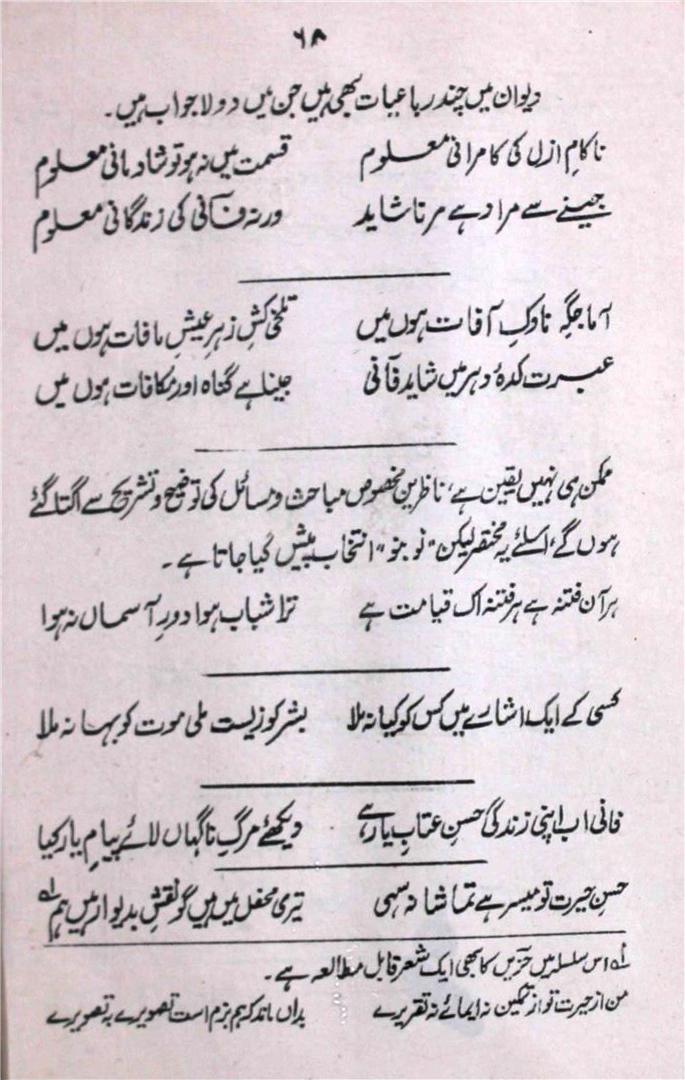 ۶۸
دیوان میں چند رباعیات بھی ہیں جن میں دو لاجواب ہیں۔
ناکامِ ازل کی کامرانی معلوم قسمت میں نہ ہو تو شادمانی معلوم
جینے سے مراد ہے مرنا شاید ورنہ فانی کی زندگانی معلوم
آماجگہِ ناوکِ آفات ہوں میں تلخی کشِ زہرِ عیشِ مافات ہوں میں
عبرت کدۂ دہر میں شاید فانی جینا ہے گناہ اور مکافات ہوں میں
ممکن ہی نہیں یقین ہے، ناظرین مخصوص مباحث و مسائل کی توضیح و تشریح سے اکتا گئے
ہوں گے، اسلئے یہ مختصر لیکن "نو بنو" انتخاب پیش کیا جاتا ہے۔
ہر آن فتنہ ہے ہر فتنہ اک قیامت ہے ترا شباب ہوا دورِ آسماں نہ ہوا
کسی کے ایک اشارے میں کس کو کیا نہ ملا بشر کو زیست ملی موت کو بہانہ ملا
فانی اب اپنی زندگی حسنِ عتابِ یار ہے دیکھئے مرگِ ناگہاں لائے پیامِ یار کیا
حسنِ حیرت تو میسر ہے تماشا نہ سہی تیری محفل میں ہیں گو نقش بدیوار ہیں ہم لہ
لہ اس سلسلہ میں حزیں کا بھی ایک شعر قابلِ مطالعہ ہے۔
من از حیرت تو از تمکین نہ ایمائے نہ تقریرے بداں ماند کہ ہم بزم است تصویرے بہ تصویرے